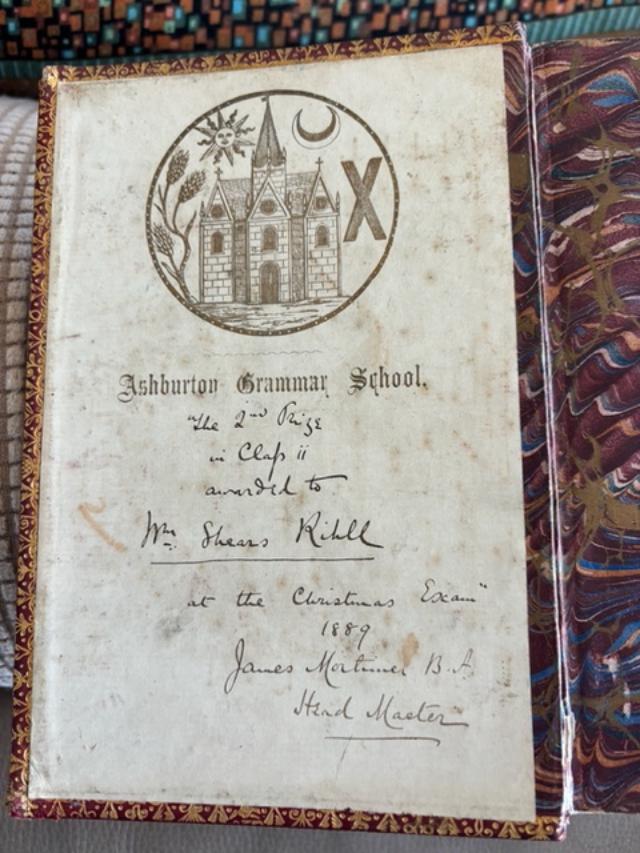 X
Ashburton Grammar School.
"The 2nd Prize
in Claſs ii
awarded to
Wm. Shears Rihll
at the Christmas Exam"
1889
James Mortimer B.A.
Head Master